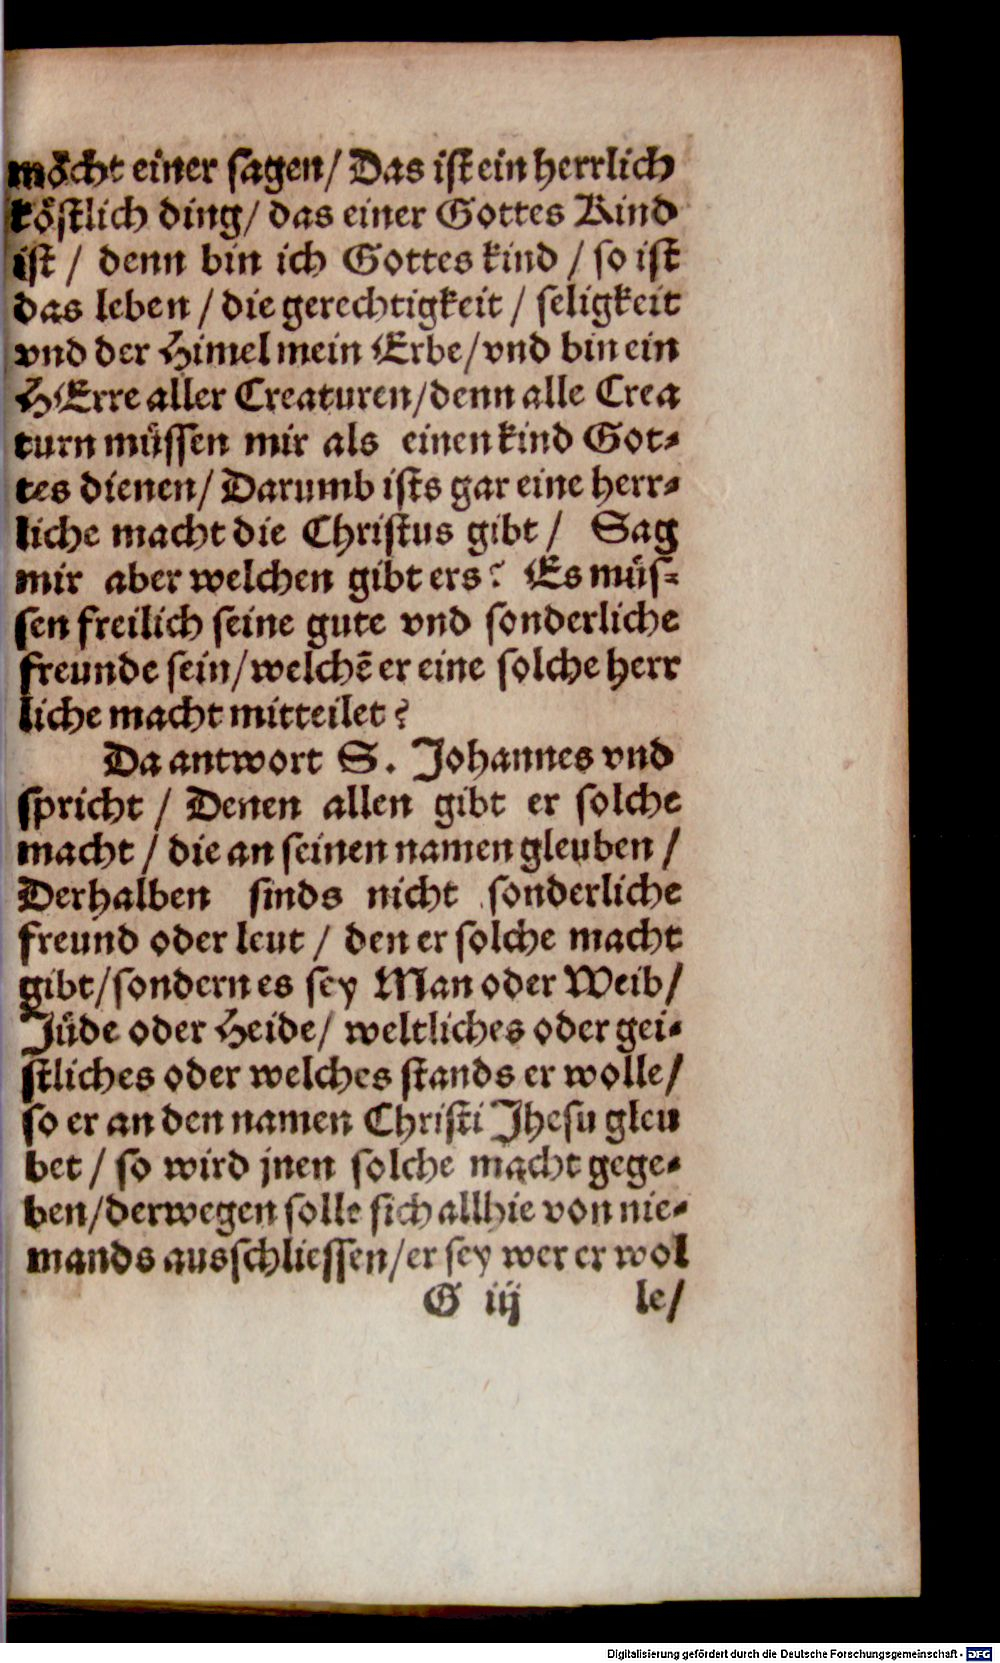 möcht einer sagen/ Das ist ein herrlich
köstlich ding/ das einer Gottes Kind
ist / denn bin ich Gottes kind / so ist
das leben / die gerechtigkeit / seligkeit
vnd der Himel mein Erbe/vnd bin ein
HErre aller Creaturen/denn alle Crea
turn müssen mir als einen kind Got-
tes dienen/ Darumb ists gar eine herr-
liche macht die Christus gibt / Sag
mir aber welchen gibt ers? Es müs-
sen freilich seine gute vnd sonderliche
freunde sein/welchē er eine solche herr
liche macht mitteilet?
Da antwort S. Johannes vnd
spricht / Denen allen gibt er solche
macht / die an seinen namen gleuben /
Derhalben sinds nicht sonderliche
freund oder leut / den er solche macht
gibt/sondern es sey Man oder Weib/
Jüde oder Heide/ weltliches oder gei-
stliches oder welches stands er wolle/
so er an den namen Christi Jhesu gleu
bet / so wird jnen solche macht gege-
ben/derwegen solle sich allhie von nie-
mands ausschliessen/er sey wer er wol
G iij le/
Digitalisierung gefördert durch die Deutsche Forschungsgemeinschaft - DFG